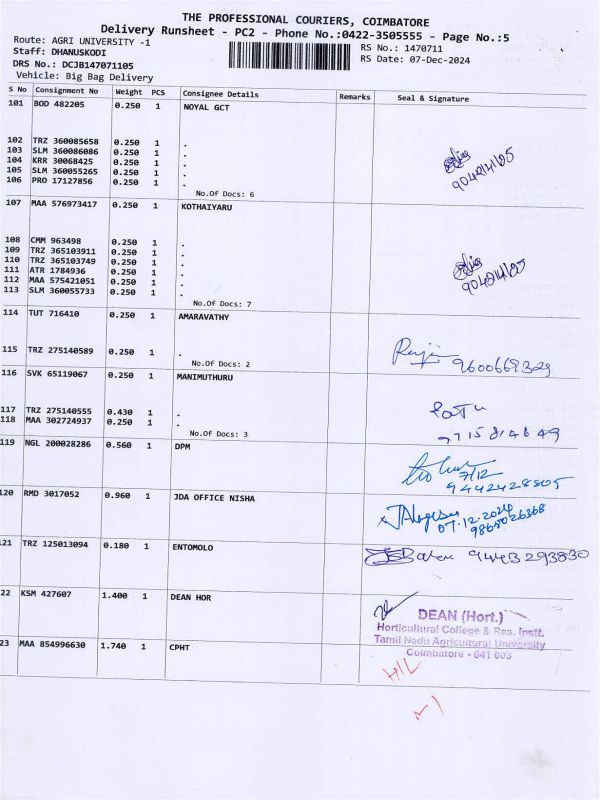 THE PROFESSIONAL COURIERS, COIMBATORE
Delivery Runsheet - PC2 - Phone No.:0422-3505555 - Page No.:5
Route: AGRI UNIVERSITY -1
RS No.: 1470711
Staff: DHANUSKODI
RS Date: 07-Dec-2024
DRS No.: DCJB147071105
Vehicle: Big Bag Delivery
S No Consignment No Weight PCS Consignee Details Remarks Seal & Signature
101 BOD 482205 0.250 1 NOYAL GCT
102 TRZ 360085658 0.250 1 .
103 SLM 360086086 0.250 1 .
104 KRR 30068425 0.250 1 .
105 SLM 360055265 0.250 1 .
106 PRO 17127856 0.250 1 .
No.Of Docs: 6
107 MAA 576973417 0.250 1 KOTHAIYARU
108 CMM 963498 0.250 1 .
109 TRZ 365103911 0.250 1 .
110 TRZ 365103749 0.250 1 .
111 ATR 1784936 0.250 1 .
112 MAA 575421051 0.250 1 .
113 SLM 360055733 0.250 1 .
No.Of Docs: 7
114 TUT 716410 0.250 1 AMARAVATHY
115 TRZ 275140589 0.250 1 .
No.Of Docs: 2
9600669329
116 SVK 65119067 0.250 1 MANIMUTHURU
117 TRZ 275140555 0.430 1 .
118 MAA 302724937 0.250 1 .
No.Of Docs: 3
119 NGL 200028286 0.560 1 DPM
7/12
9442428805
120 RMD 3017052 0.960 1 JDA OFFICE NISHA
07.12.2024
9865026368
121 TRZ 125013094 0.180 1 ENTOMOLO
9443293830
22 KSM 427607 1.400 1 DEAN HOR
DEAN (Hort.)
Horticultural College & Res. Instt.
Tamil Nadu Agricultural University
Coimbatore - 641 003
23 MAA 854996630 1.740 1 CPHT
H/L